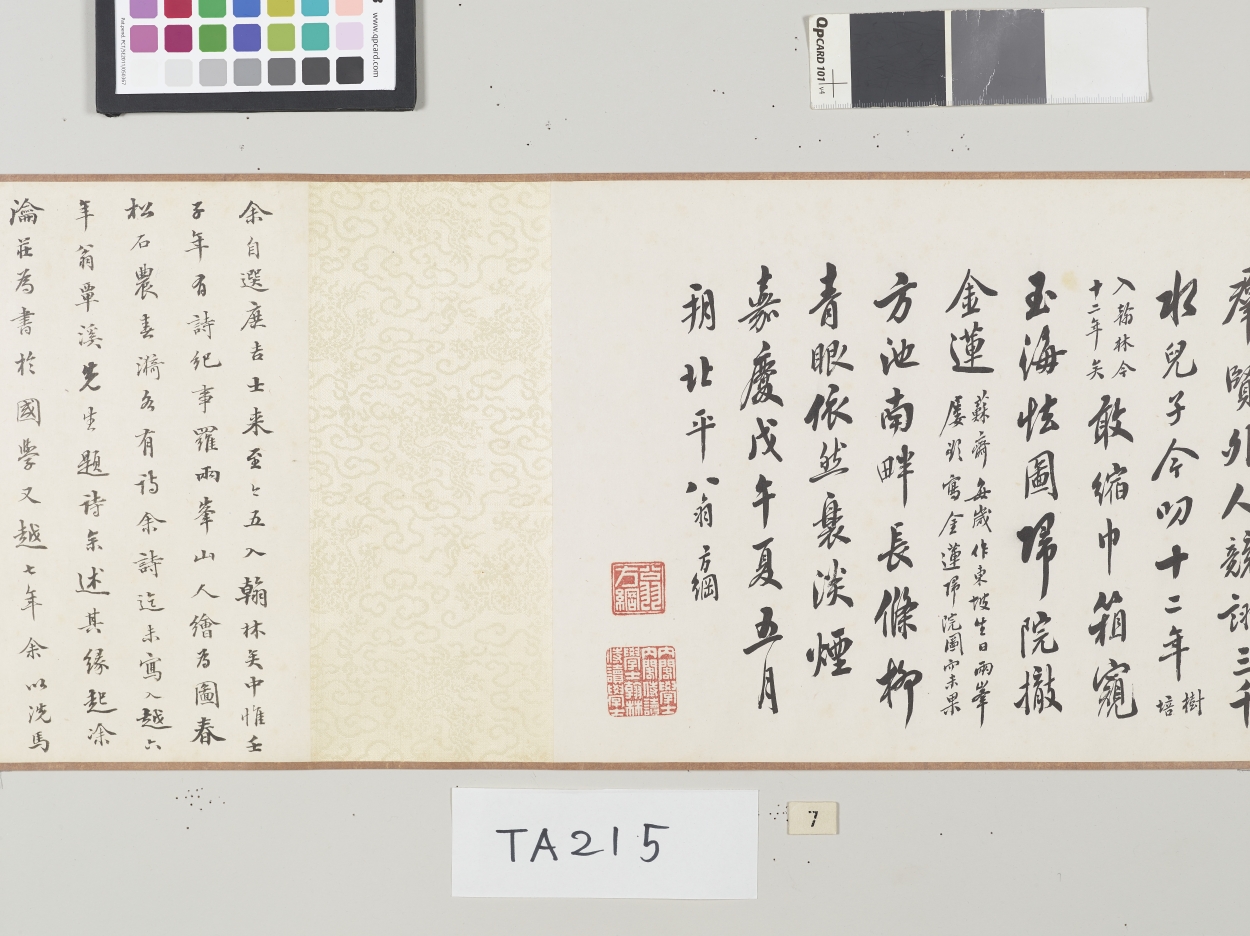 羣賢外人競詠三千
水兒子今叨十二年
樹
培
入翰林今
十二年矣
敢縮巾箱窺
玉海怯圖歸院撤
金蓮
蘇齋每歲作東坡生日兩峯
屢欲寫金蓮歸院圖而未果
方池南畔長條柳
青眼依然裊淡煙
嘉慶戊午夏五月
朔北平八翁方綱
翁方綱
內閣學士
內閣侍讀
學士翰林
侍讀學士
余自選庶吉士来至今五入翰林矣中惟壬
子年有詩紀事羅兩峯山人繪為圖春
松石農春漪各有詩余詩迄未寫入越六
年翁覃溪先生題詩余述其緣起余
瀹莊為書於國學又越七年余以洗馬
TA215
7
QPCARD 101 v4
www.qpcard.com